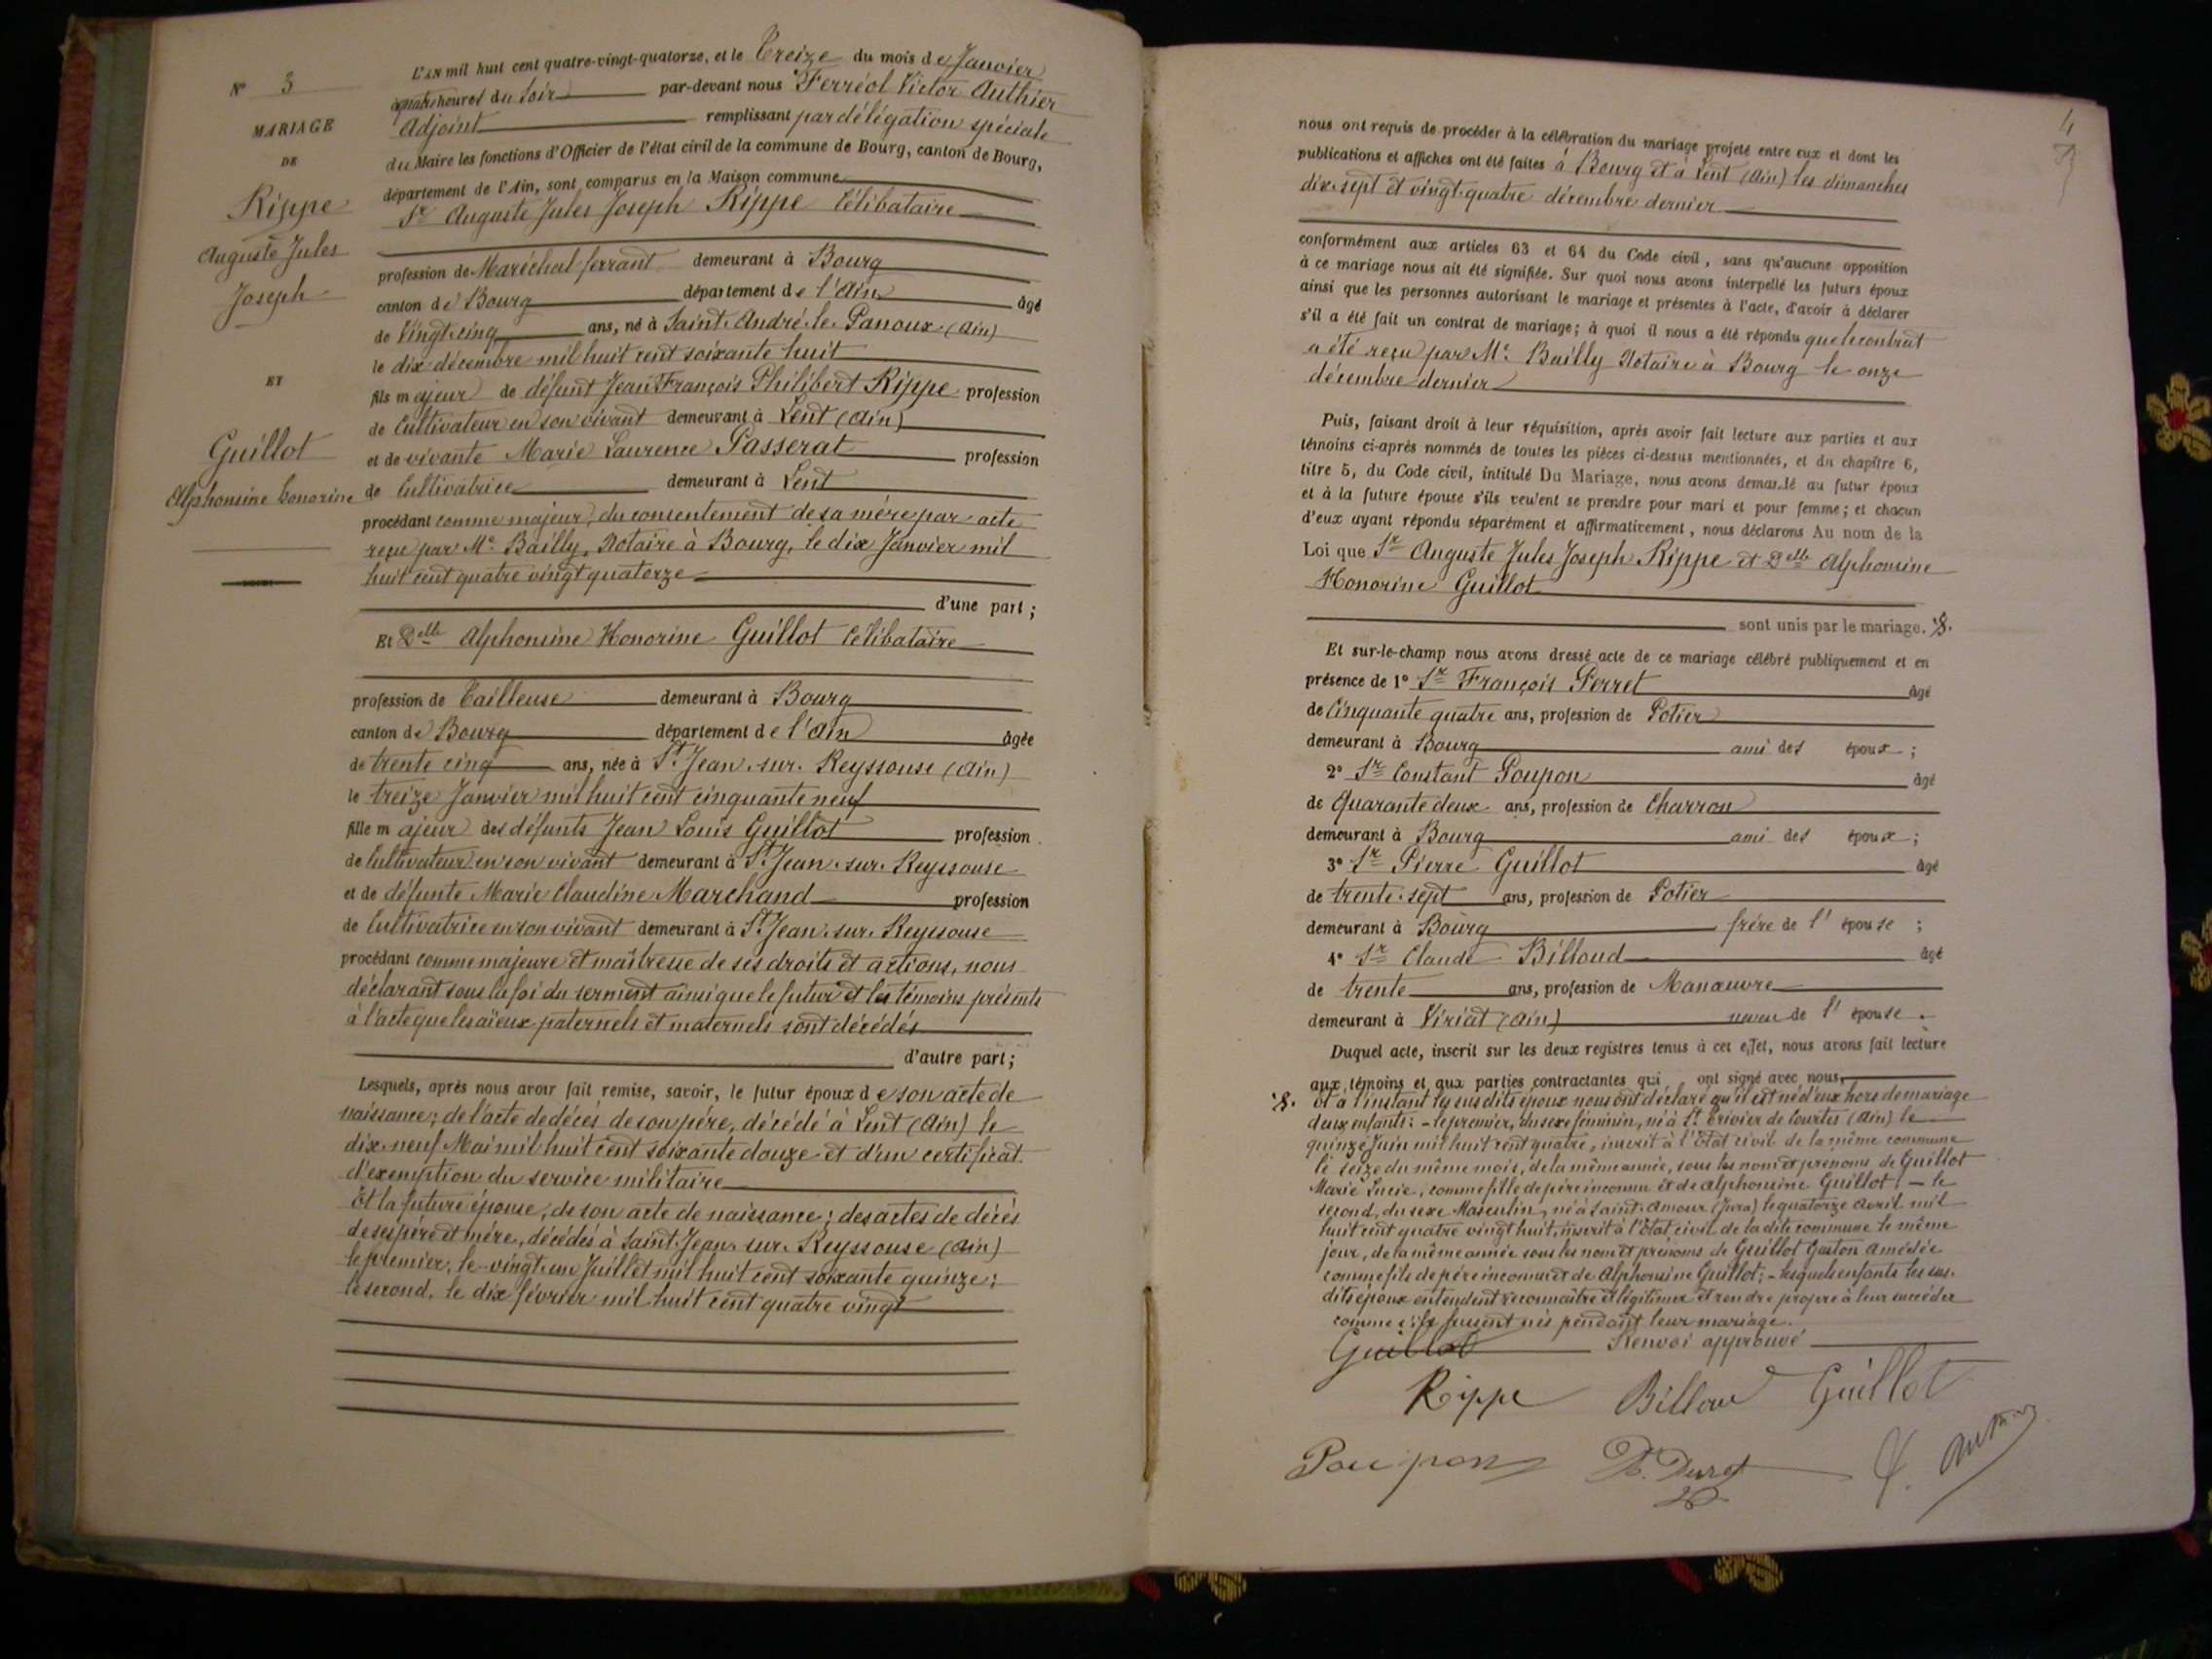 N° 3
MARIAGE
DE
Rippe
Auguste Jules
Joseph
ET
Guillot
Alphonsine honorine
L'AN mil huit cent quatre-vingt-quatorze, et le Treize du mois de Janvier
à quatre heures du Soir par-devant nous Ferréol Victor Authier
Adjoint remplissant par délégation spéciale
du Maire les fonctions d'Officier de l'état civil de la commune de Bourg, canton de Bourg,
département de l'Ain, sont comparus en la Maison commune
Sr Auguste Jules Joseph Rippe Célibataire
profession de Maréchal ferrant demeurant à Bourg
canton de Bourg département de l'Ain âgé
de Vingt cinq ans, né à Saint. André. le. Panoux (Ain)
le dix décembre mil huit cent soixante huit
fils majeur de défunt Jean François Philibert Rippe profession
de Cultivateur en son vivant demeurant à Lent (Ain)
et de vivante Marie Laurence Passerat profession
de Cultivatrice demeurant à Lent
procédant comme majeur, du consentement de sa mère par acte
reçu par Me Bailly, Notaire à Bourg, le dix Janvier mil
huit cent quatre vingt quatorze
d'une part ;
Et Delle Alphonsine Honorine Guillot Célibataire
profession de Tailleuse demeurant à Bourg
canton de Bourg département de l'Ain âgée
de trente cinq ans, née à St Jean. sur. Reyssouse (Ain)
le treize Janvier mil huit cent cinquante neuf
fille majeur des défunts Jean Louis Guillot profession
de Cultivateur en son vivant demeurant à St Jean. sur. Reyssouse
et de défunte Marie Claudine Marchand profession
de Cultivatrice en son vivant demeurant à St Jean. sur. Reyssouse
procédant comme majeure et maîtresse de ses droits et actions, nous
déclarant sous la foi du serment ainsi que le futur et les témoins présents
à l'acte que les aïeux paternels et maternels sont décédés
d'autre part ;
Lesquels, après nous avoir fait remise, savoir, le futur époux de son acte de
naissance ; de l'acte de décès de son père, décédé à Lent (Ain) le
dix. neuf Mai mil huit cent soixante douze et d'un certificat
d'exemption du service militaire
Et la future épouse, de son acte de naissance ; des actes de décès
de ses père et mère, décédés à Saint. Jean. sur. Reyssouse (Ain)
le premier, le vingt. un Juillet mil huit cent soixante quinze ;
le second, le dix février mil huit cent quatre vingt
4
nous ont requis de procéder à la célébration du mariage projeté entre eux et dont les
publications et affiches ont été faites à Bourg et à Lent (Ain) les dimanches
dix. sept et vingt. quatre décembre dernier
conformément aux articles 63 et 64 du Code civil, sans qu'aucune opposition
à ce mariage nous ait été signifiée. Sur quoi nous avons interpellé les futurs époux
ainsi que les personnes autorisant le mariage et présentes à l'acte, d'avoir à déclarer
s'il a été fait un contrat de mariage ; à quoi il nous a été répondu que le contrat
a été reçu par Me Bailly Notaire à Bourg le onze
décembre dernier
Puis, faisant droit à leur réquisition, après avoir fait lecture aux parties et aux
témoins ci-après nommés de toutes les pièces ci-dessus mentionnées, et du chapitre 6,
titre 5, du Code civil, intitulé Du Mariage, nous avons demandé au futur époux
et à la future épouse s'ils veulent se prendre pour mari et pour femme ; et chacun
d'eux ayant répondu séparément et affirmativement, nous déclarons Au nom de la
Loi que Sr Auguste Jules Joseph Rippe et Delle Alphonsine
Honorine Guillot
sont unis par le mariage.
Et sur-le-champ nous avons dressé acte de ce mariage célébré publiquement et en
présence de 1° Sr François Perret âgé
de Cinquante quatre ans, profession de Potier
demeurant à Bourg ami des époux ;
2° Sr Constant Poupon âgé
de Quarante deux ans, profession de Charron
demeurant à Bourg ami des époux ;
3° Sr Pierre Guillot âgé
de trente. sept ans, profession de Potier
demeurant à Bourg frère de l'épouse ;
4° Sr Claude Billoud âgé
de trente ans, profession de Manœuvre
demeurant à Viriat (Ain) neveu de l'épouse.
Duquel acte, inscrit sur les deux registres tenus à cet effet, nous avons fait lecture
aux témoins et aux parties contractantes qui ont signé avec nous,
et à l'instant les susdits époux nous ont déclaré qu'il est né d'eux hors de mariage
deux enfants : – le premier, du sexe féminin, né à St Trivier de Courtes (Ain) le
quinze Juin mil huit cent quatre, inscrit à l'Etat civil de la même commune
le seize du même mois, de la même année, sous les nom et prénoms de Guillot
Marie Lucie, comme fille de père inconnu et de Alphonsine Guillot ; – le
second, du sexe Masculin, né à Saint. Amour (Jura) le quatorze Avril mil
huit cent quatre vingt huit, inscrit à l'Etat civil de la dite commune le même
jour, de la même année sous les nom et prénoms de Guillot Gaston Amédée
comme fils de père inconnu et de Alphonsine Guillot ; – lesquels enfants les sus.
dits époux entendent reconnaître et légitimer et rendre propre à leur succéder
comme s'ils fussent nés pendant leur mariage.
Guillot Renvoi approuvé
Rippe Billoud Guillot
Poupon